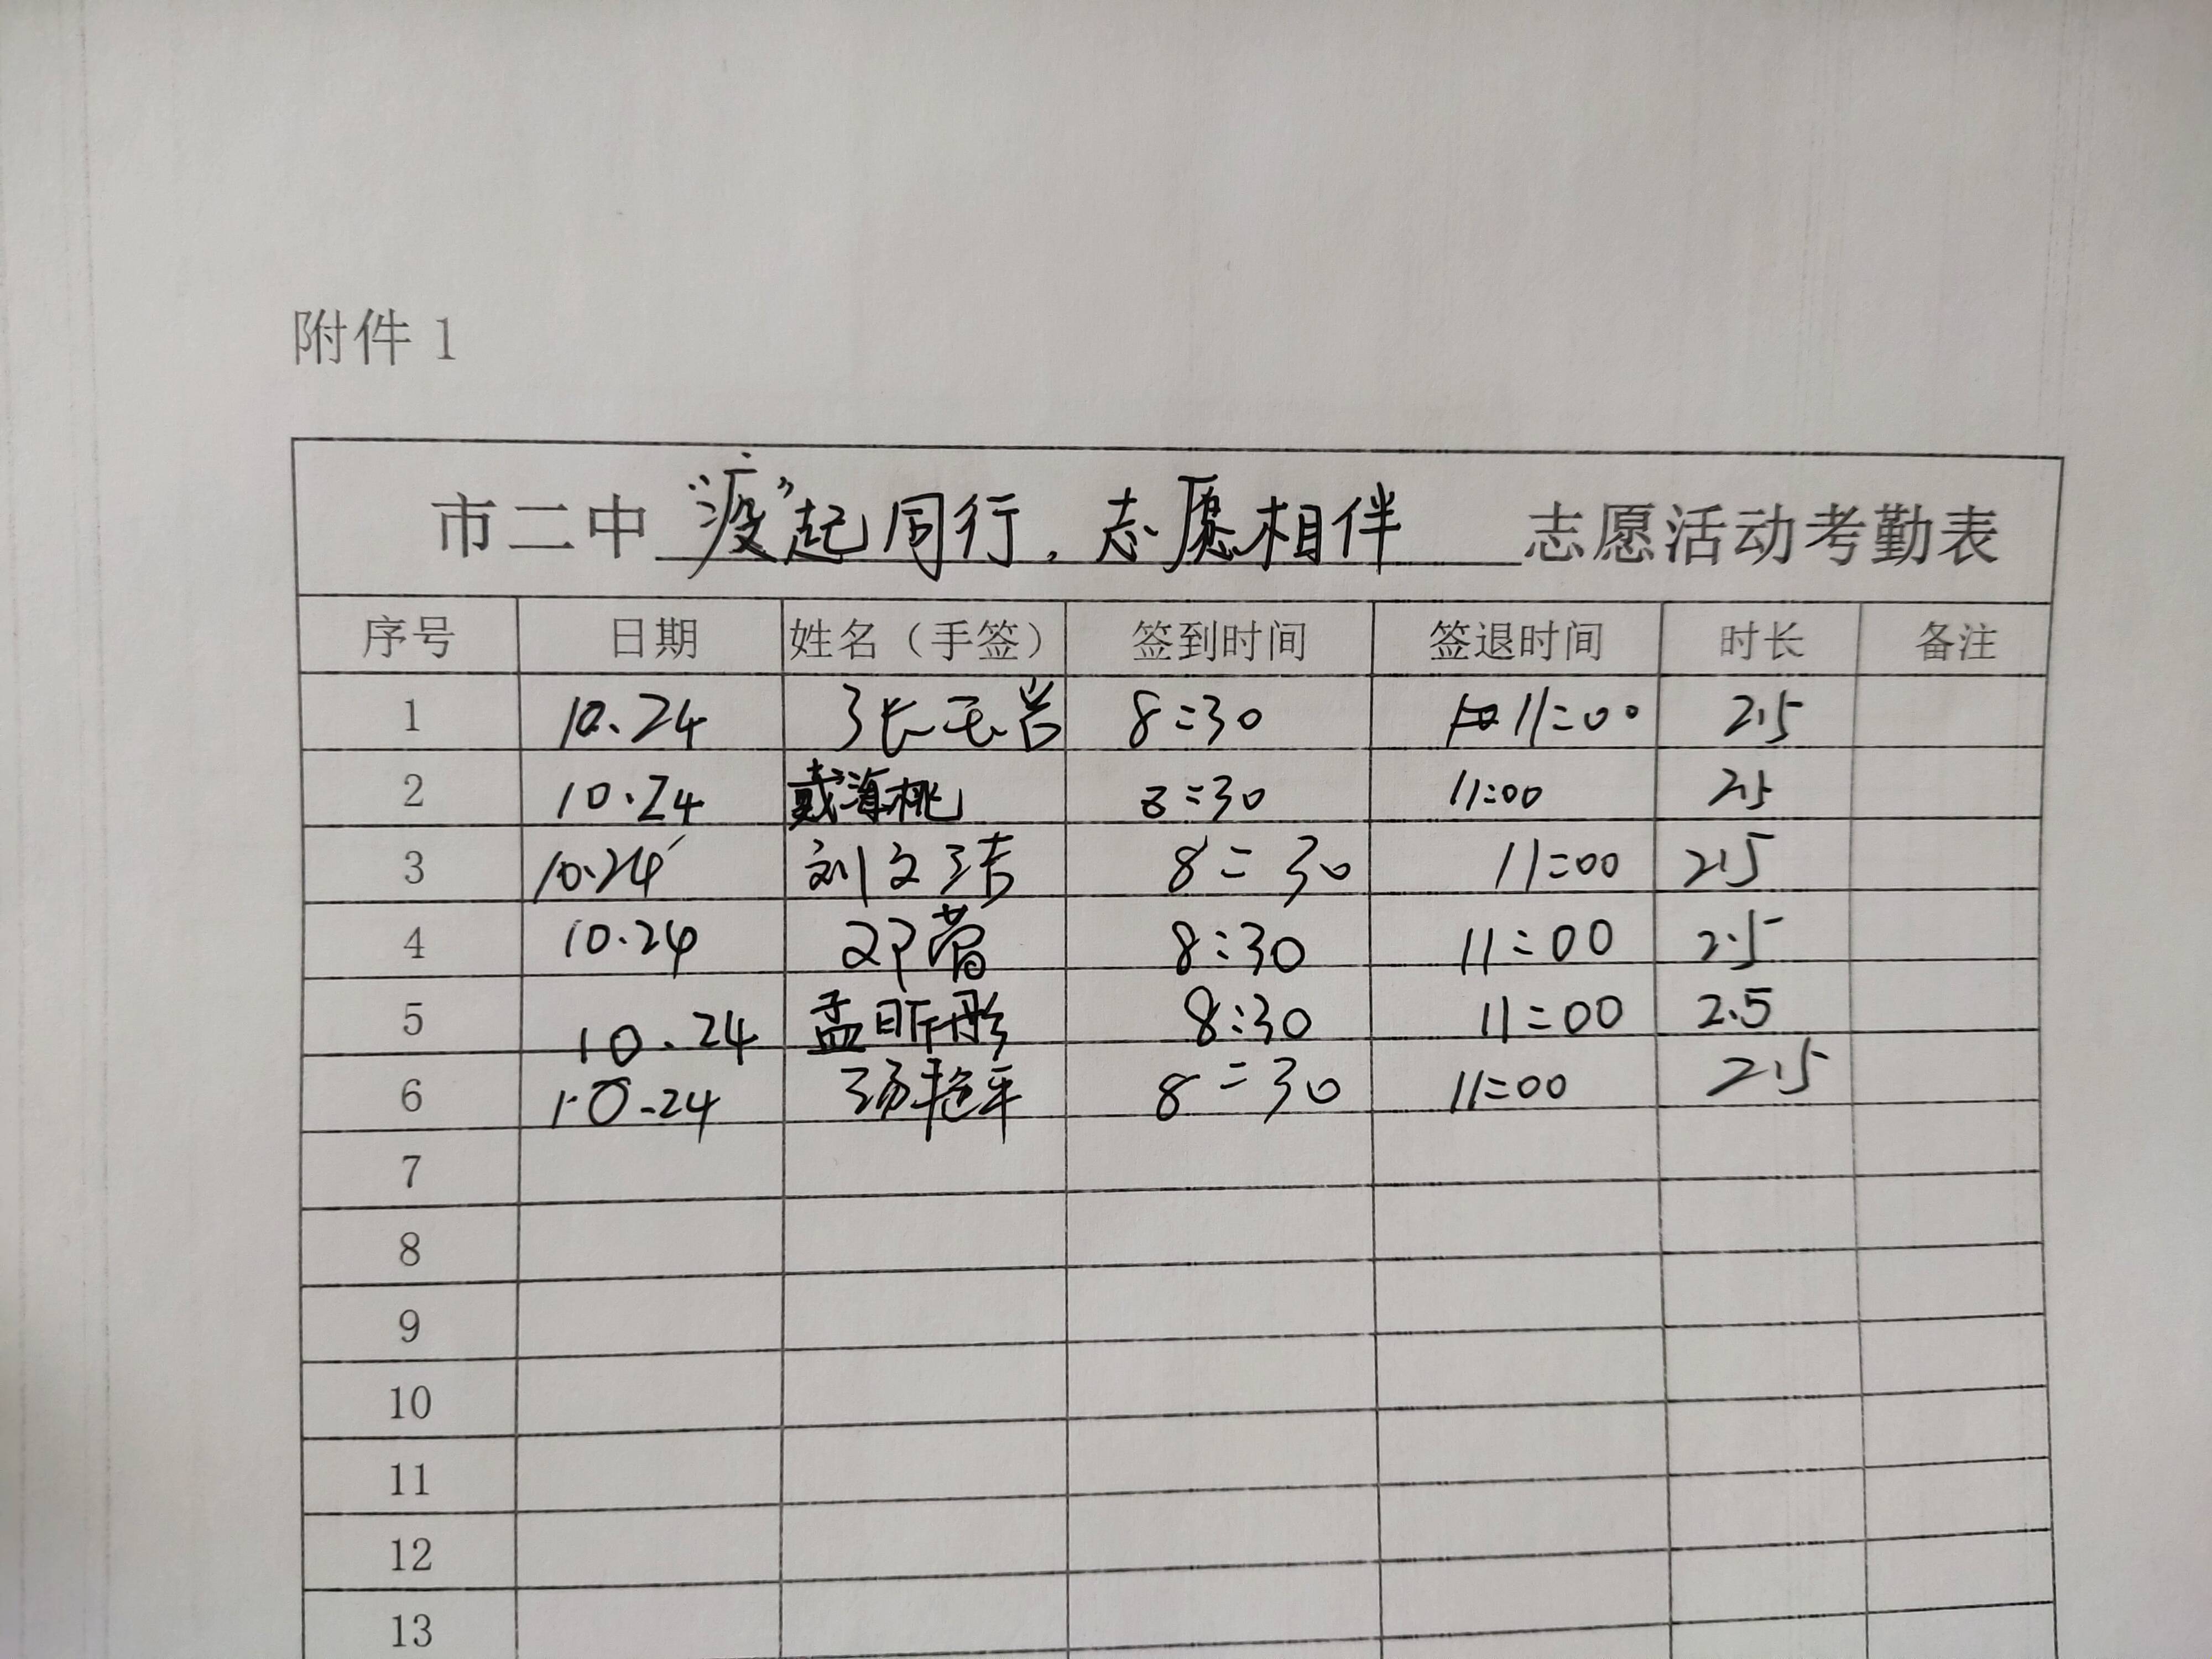 附件 1
市二中 “疫”起同行，志愿相伴 志愿活动考勤表
序号 日期 姓名（手签） 签到时间 签退时间 时长 备注
1 10.24 张 8:30 11:00 2.5
2 10.24 戴海桃 8:30 11:00 2.5
3 10.24 刘文洁 8:30 11:00 2.5
4 10.24 邓蕾 8:30 11:00 2.5
5 10.24 孟昕彤 8:30 11:00 2.5
6 10.24 汤艳平 8:30 11:00 2.5
7
8
9
10
11
12
13